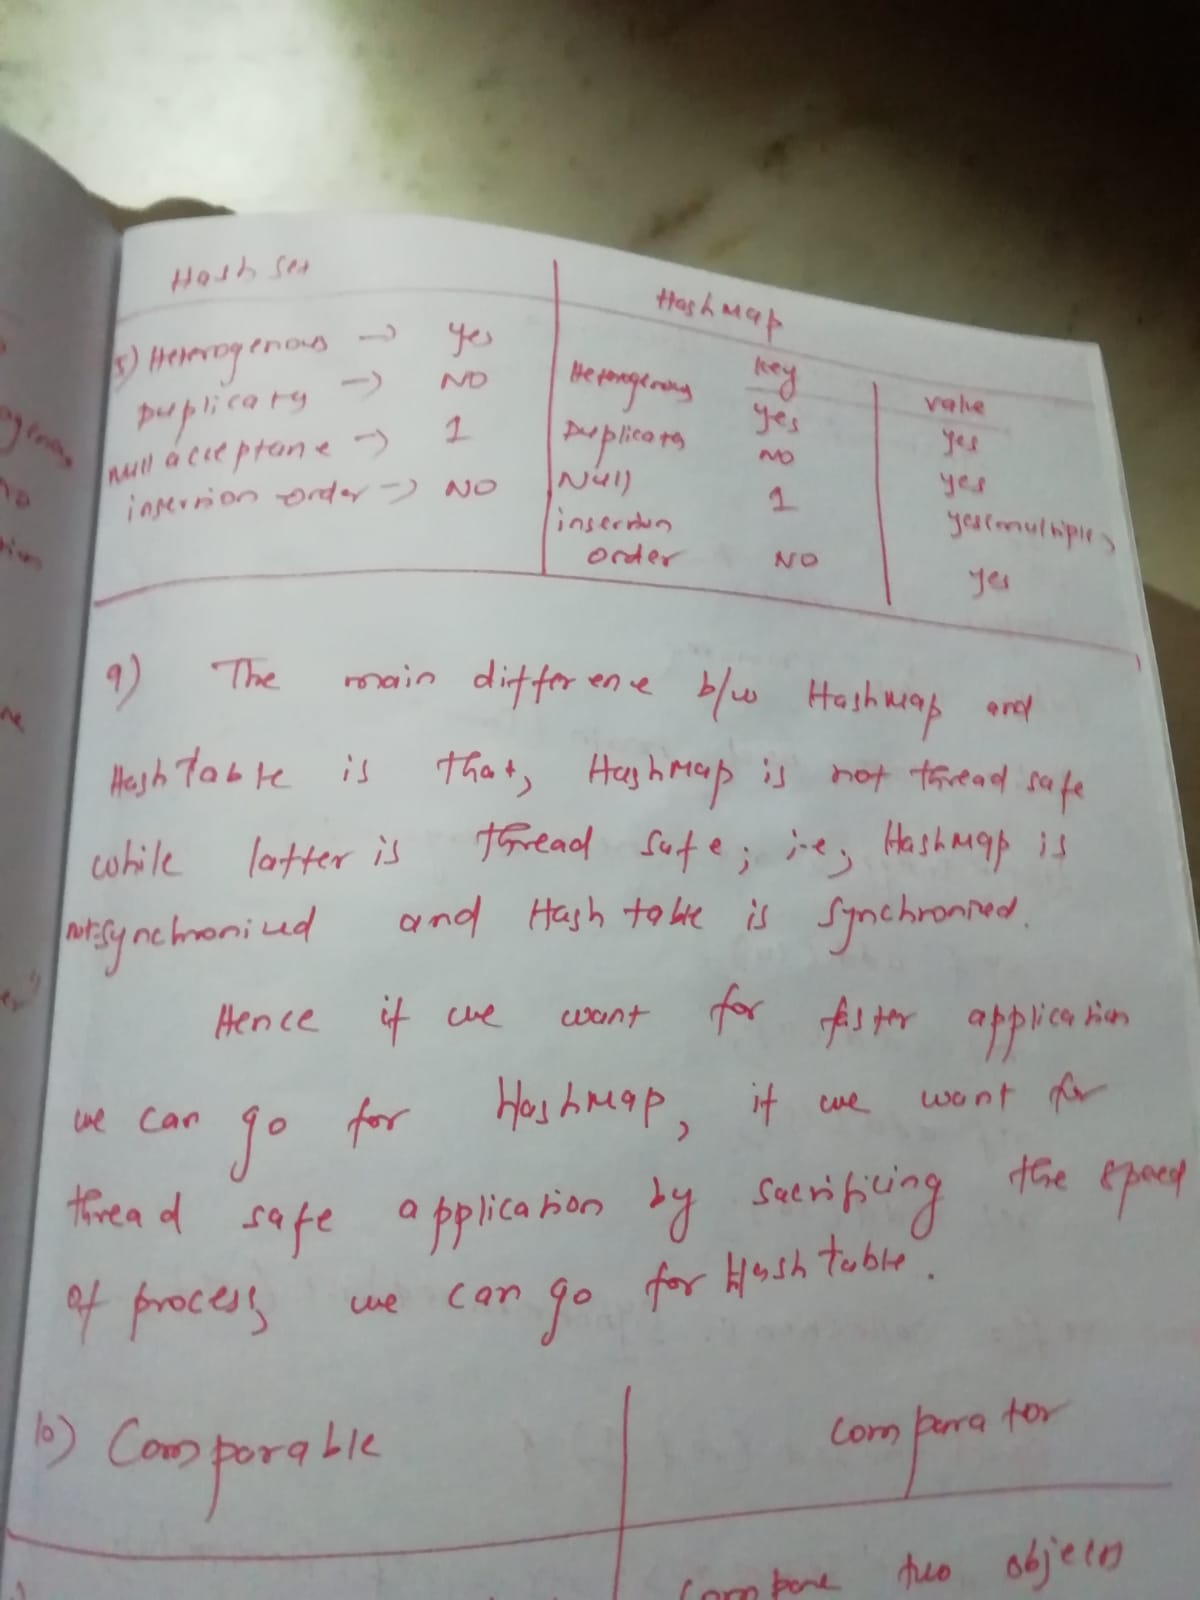 Hash Set
5) Heterogenous → yes
Duplicacy → NO
null acceptance → 1
insertion order → NO
Hashmap
key value
Heterogenous yes yes
Duplicacy NO yes
Null 1 yes(multiple)
insertion
order NO yes
9) The main difference b/w Hashmap and
Hash Table is that, HashMap is not thread safe
while latter is thread safe; i.e; Hashmap is
not synchronized and Hash table is synchronized.
Hence if we want for faster application
we can go for Hashmap, if we want for
thread safe application by sacrificing the speed
of process, we can go for Hash table.
10) Comparable
Comparator
Compare two objects